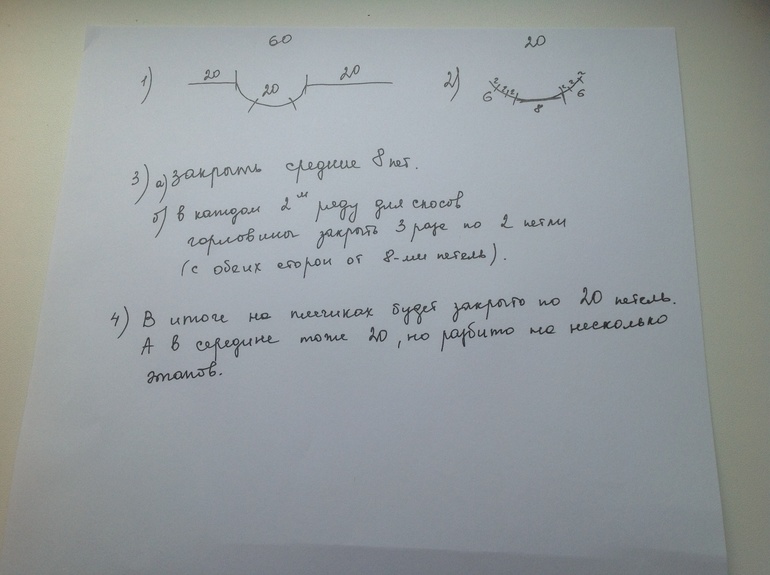 60
20
1) 20 20 20
2) 2 2 2 2 2 2
6 8 6
3) а) закрыть средние 8 пет.
б) в каждом 2м ряду для скосов
горловины закрыть 3 раза по 2 петли
(с обеих сторон от 8-ми петель).
4) В итоге на плечиках будет закрыто по 20 петель.
А в середине тоже 20, но разбито на несколько
этапов.